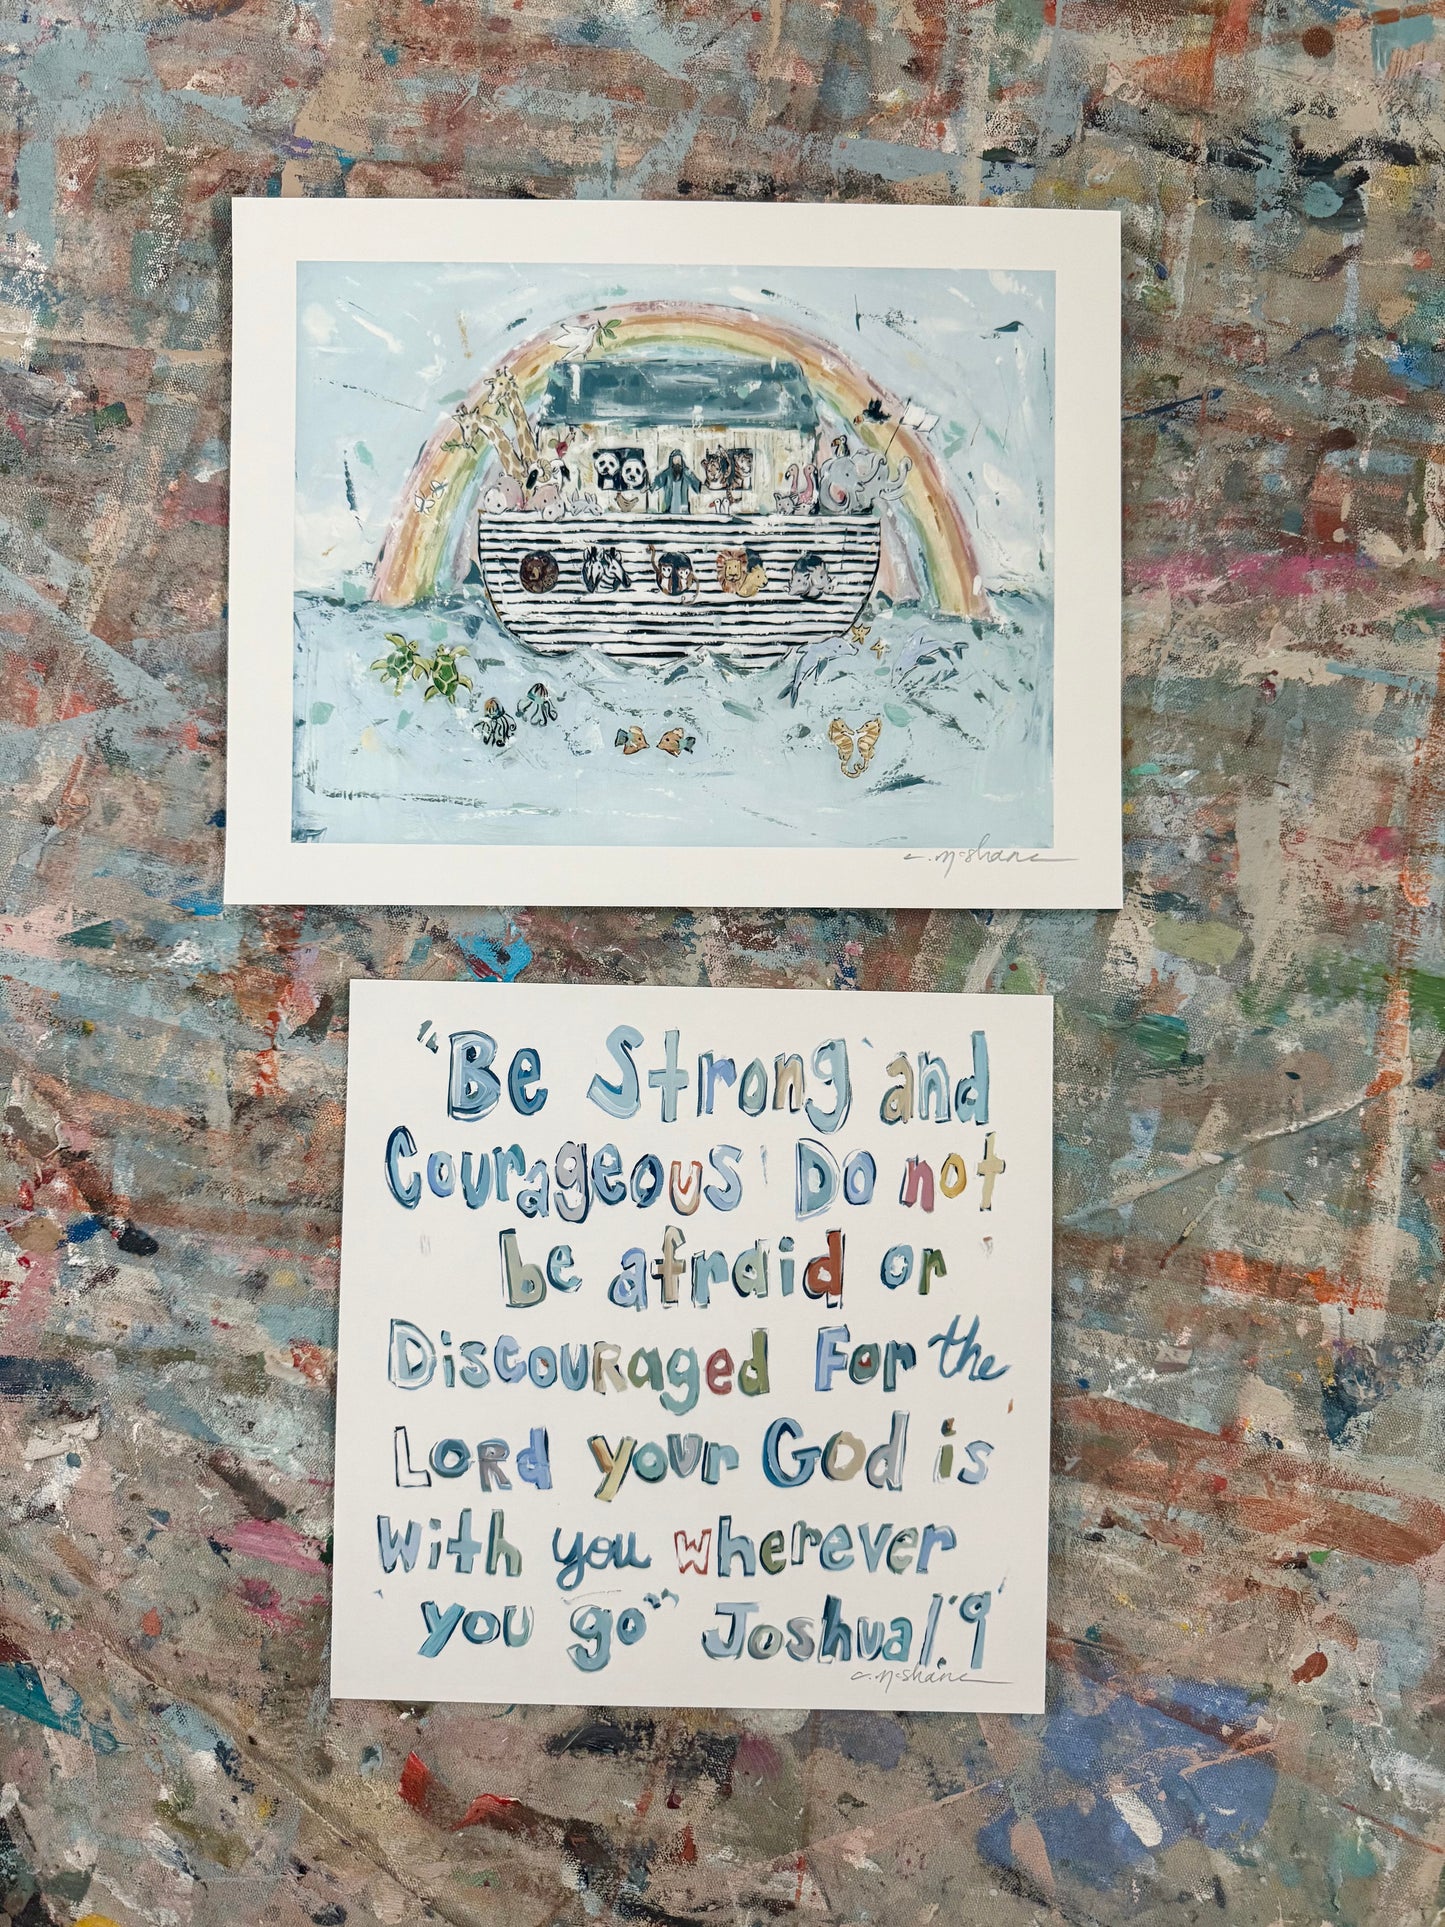 c. McShane
"Be Strong and
Courageous Do not
be afraid or
Discouraged For the
Lord your God is
With you wherever
you go" Joshua 1:9
c. McShane